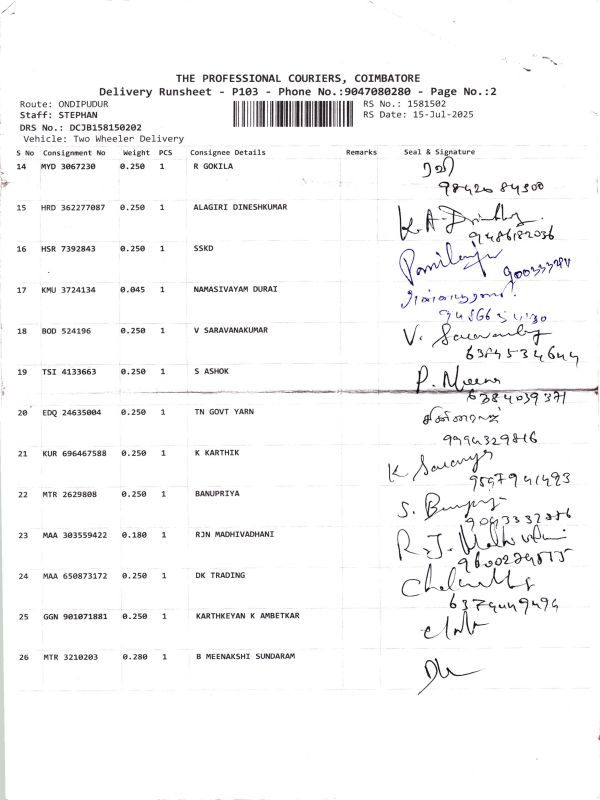 THE PROFESSIONAL COURIERS, COIMBATORE
Delivery Runsheet - P103 - Phone No.:9047080280 - Page No.:2
Route: ONDIPUDUR RS No.: 1581502
Staff: STEPHAN RS Date: 15-Jul-2025
DRS No.: DCJB158150202
Vehicle: Two Wheeler Delivery
S No Consignment No Weight PCS Consignee Details Remarks Seal & Signature
14 MYD 3067230 0.250 1 R GOKILA ரவி
9842084300
15 HRD 362277087 0.250 1 ALAGIRI DINESHKUMAR
9486182036
16 HSR 7392843 0.250 1 SSKD
17 KMU 3724134 0.045 1 NAMASIVAYAM DURAI
18 BOD 524196 0.250 1 V SARAVANAKUMAR V.
6384534644
19 TSI 4133663 0.250 1 S ASHOK P. Meena
6384039371
20 EDQ 24635004 0.250 1 TN GOVT YARN
9994329816
21 KUR 696467588 0.250 1 K KARTHIK K Saranya
9597941493
22 MTR 2629808 0.250 1 BANUPRIYA S.
23 MAA 303559422 0.180 1 RJN MADHIVADHANI R.J.
24 MAA 650873172 0.250 1 DK TRADING
6374449494
25 GGN 901071881 0.250 1 KARTHKEYAN K AMBETKAR
26 MTR 3210203 0.280 1 B MEENAKSHI SUNDARAM